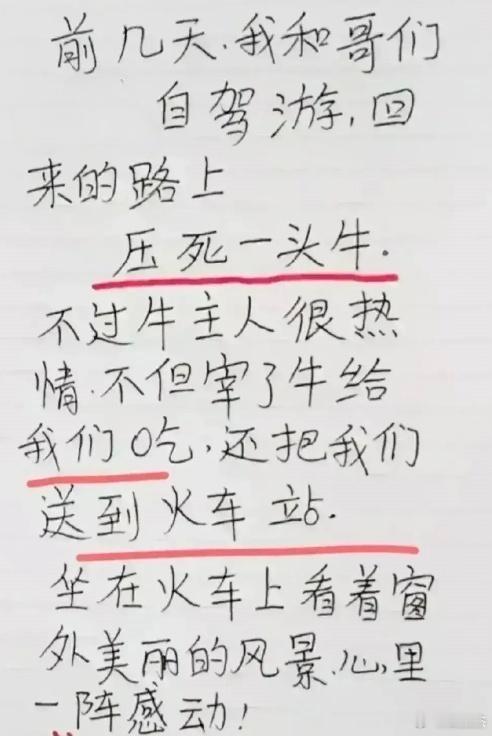 前几天.我和哥们
自驾游,回
来的路上
压死一头牛.
不过牛主人很热
情.不但宰了牛给
我们吃.还把我们
送到火车站.
坐在火车上看着窗
外美丽的风景.心里
一阵感动!